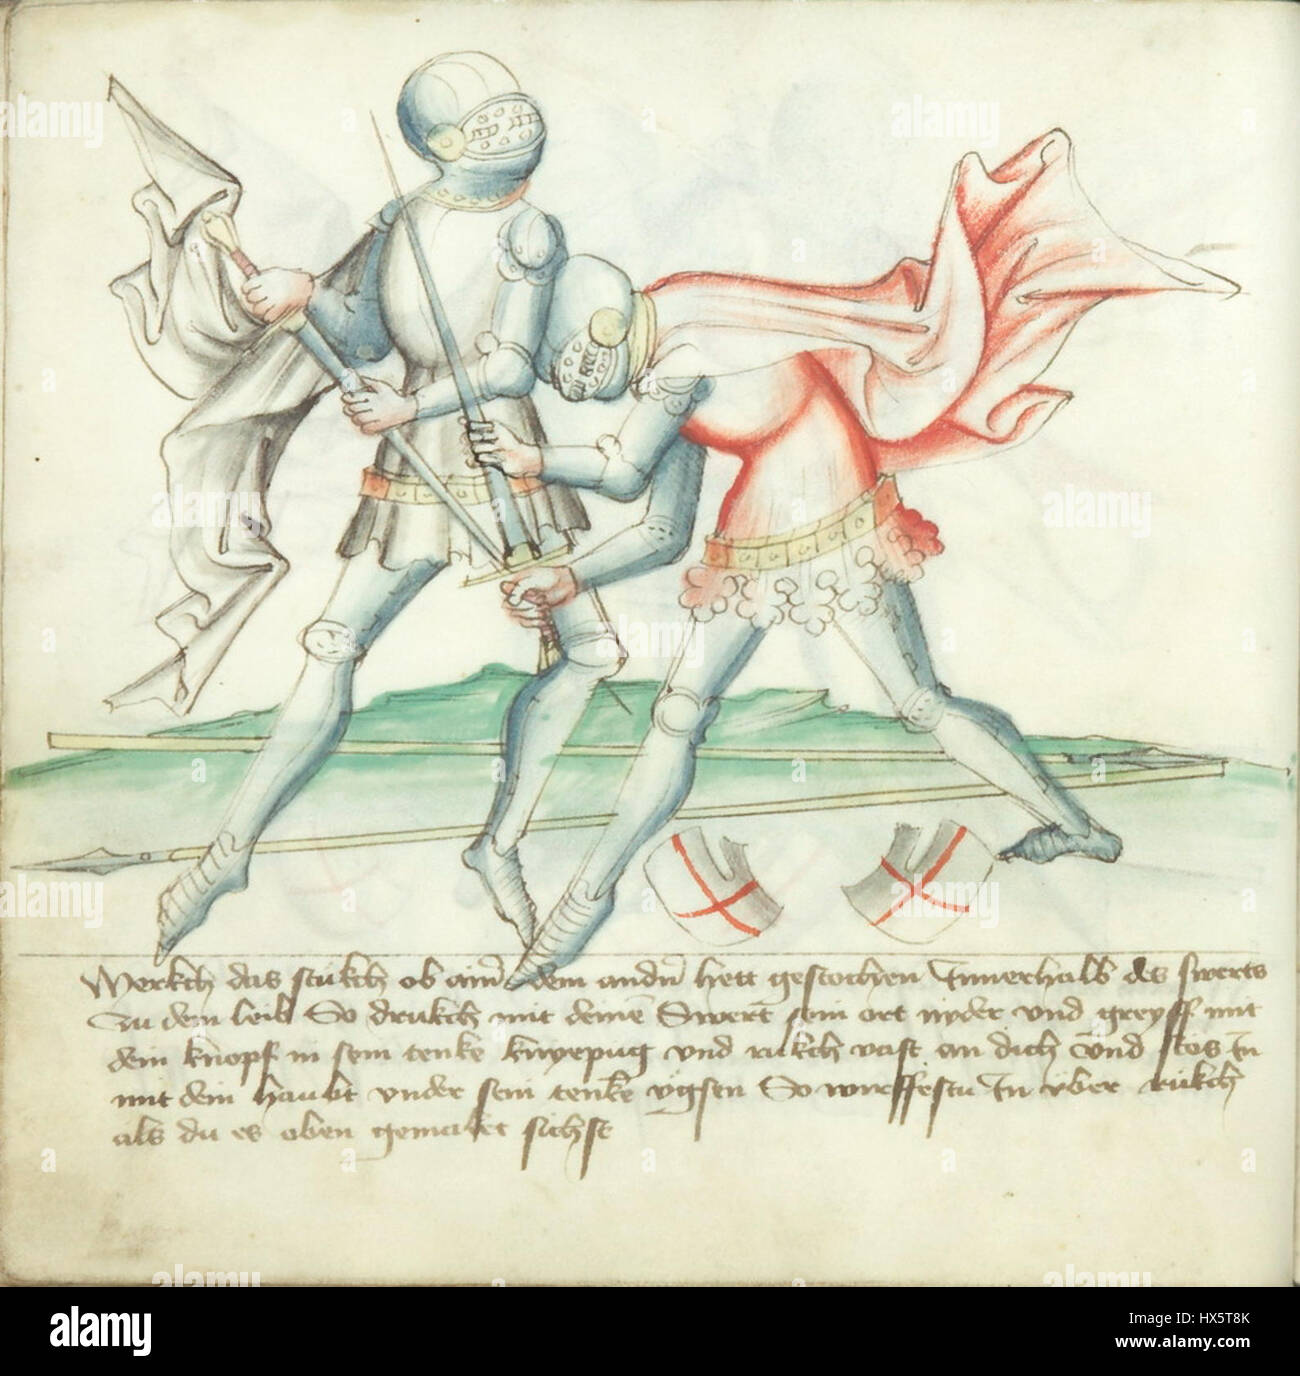 Merckch das stuckch ob ainer dem andern hett gestochen Innerhalb des swerts
Zu dem leib So druckch mit deinem Swert sein ort nyder vnd greyff mit
dein knopf in sein tenke knyepug vnd ruckch vast an dich vnd stos In
mit dein haubt vnder sein tenke ygsen So wirffestu In vber ruckch
als du es oben gemalet sichst
alamy
www.alamy.com
Image ID: HX5T8K